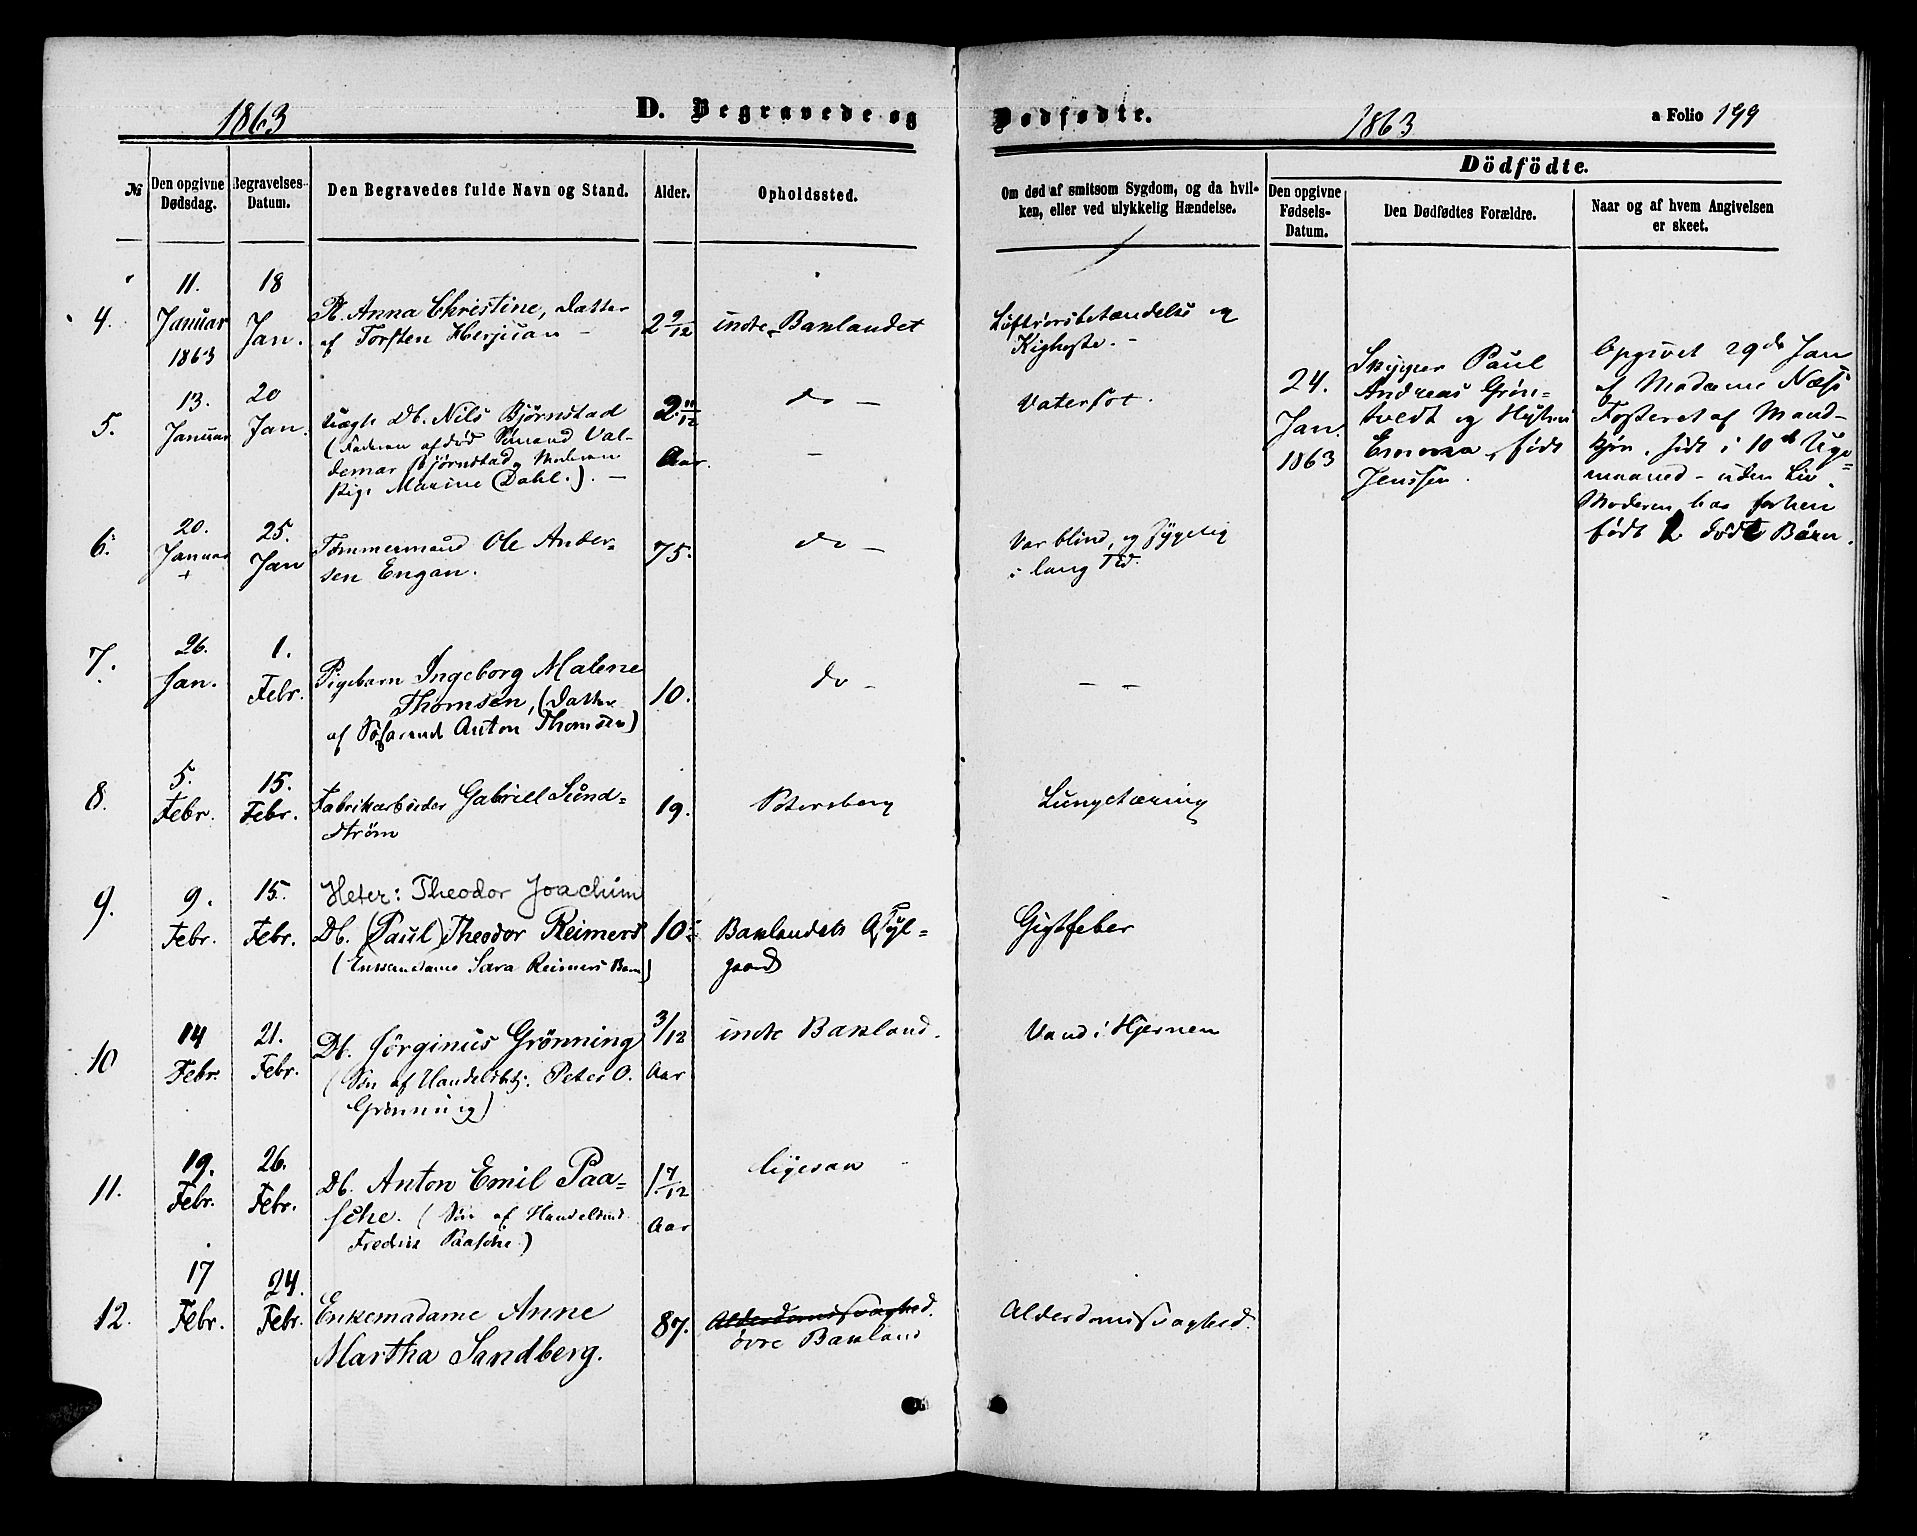 1863
D. Begravede og
№
Den opgivne Dødsdag.
Begravelses-Datum.
Den Begravedes fulde Navn og Stand.
Alder.
Opholdssted.
4.
11.
Januar
1863
18
Jan.
Pb. Anna Christine, Datter
af Torsten Herjuan
2 9/12
indre Baklandet
5.
13.
Januar
20
Jan.
uægte Db. Nils Bjørnstad
(Faderen afdød Sømand Val-
demar Bjørnstad, Moderen
Pige Maxine Dahl.). –
2 11/12
Aar.
do –
–
6.
20.
Januar
+
25.
Jan
Tømmermand Ole Ander-
sen Engan.
75.
do –
7.
26.
Jan.
1.
Febr.
Pigebarn Ingeborg Malene
Thomsen, (Datter
af Søfarende Anton Thomsen)
10.
do –
8.
5.
Febr.
15.
Febr.
Fabrikarbeider Gabriell Sund=
ström
19.
Petersberg
9.
9.
Febr.
15.
Febr.
Heter: Theodor Joachim
Db. (Paul) Theodor Reimers
(Enkemadame Sara Reimers Barn)
10
Baklandets Asyl=
gaard
10
14
Febr.
21.
Febr.
Db. Jörginus Grönning
(Søn af Handelsbtj. Peter O.
Grønning)
3/12
Aar
indre Bakland.
11.
19.
Febr.
26.
Febr.
Db. Anton Emil Paa=
sche. (Søn af Handelsmd.
Fredrik Paasche.)
1 7/12
Aar
ligesaa
12.
17
Febr.
24.
Febr.
Enkemadame Anne
Martha Sandberg.
87.
Alderdomssvaghed.
øvre Bakland
Dødfødte.
1863
a Folio 199
Om død af smitsom Sygdom, og da hvil-
ken, eller ved ulykkelig Hændelse.
Dödfödte.
Den opgivne Fødsels-Datum.
Den Dødfødtes Forældre.
Naar og af hvem Angivelsen
er skeet.
Luftrørsbetændelse og
Kighoste. –
Vatersot. –
Var blind, og sygelig
i lang Tid.
– –
Lungetæring
Gigtfeber
Vand i Hjernen
Alderdomssvaghed.
24.
Jan.
1863
Skipper Paul
Andreas Grøn-
tvedt og Hustru
Emma, født
Jenssen.
Opgivet 29de Jan
af Madame Næss
Fosteret af Mand-
kjøn, født i 10de
maaned – uden Liv.
Moderen har forhen
født 2 døde Børn.